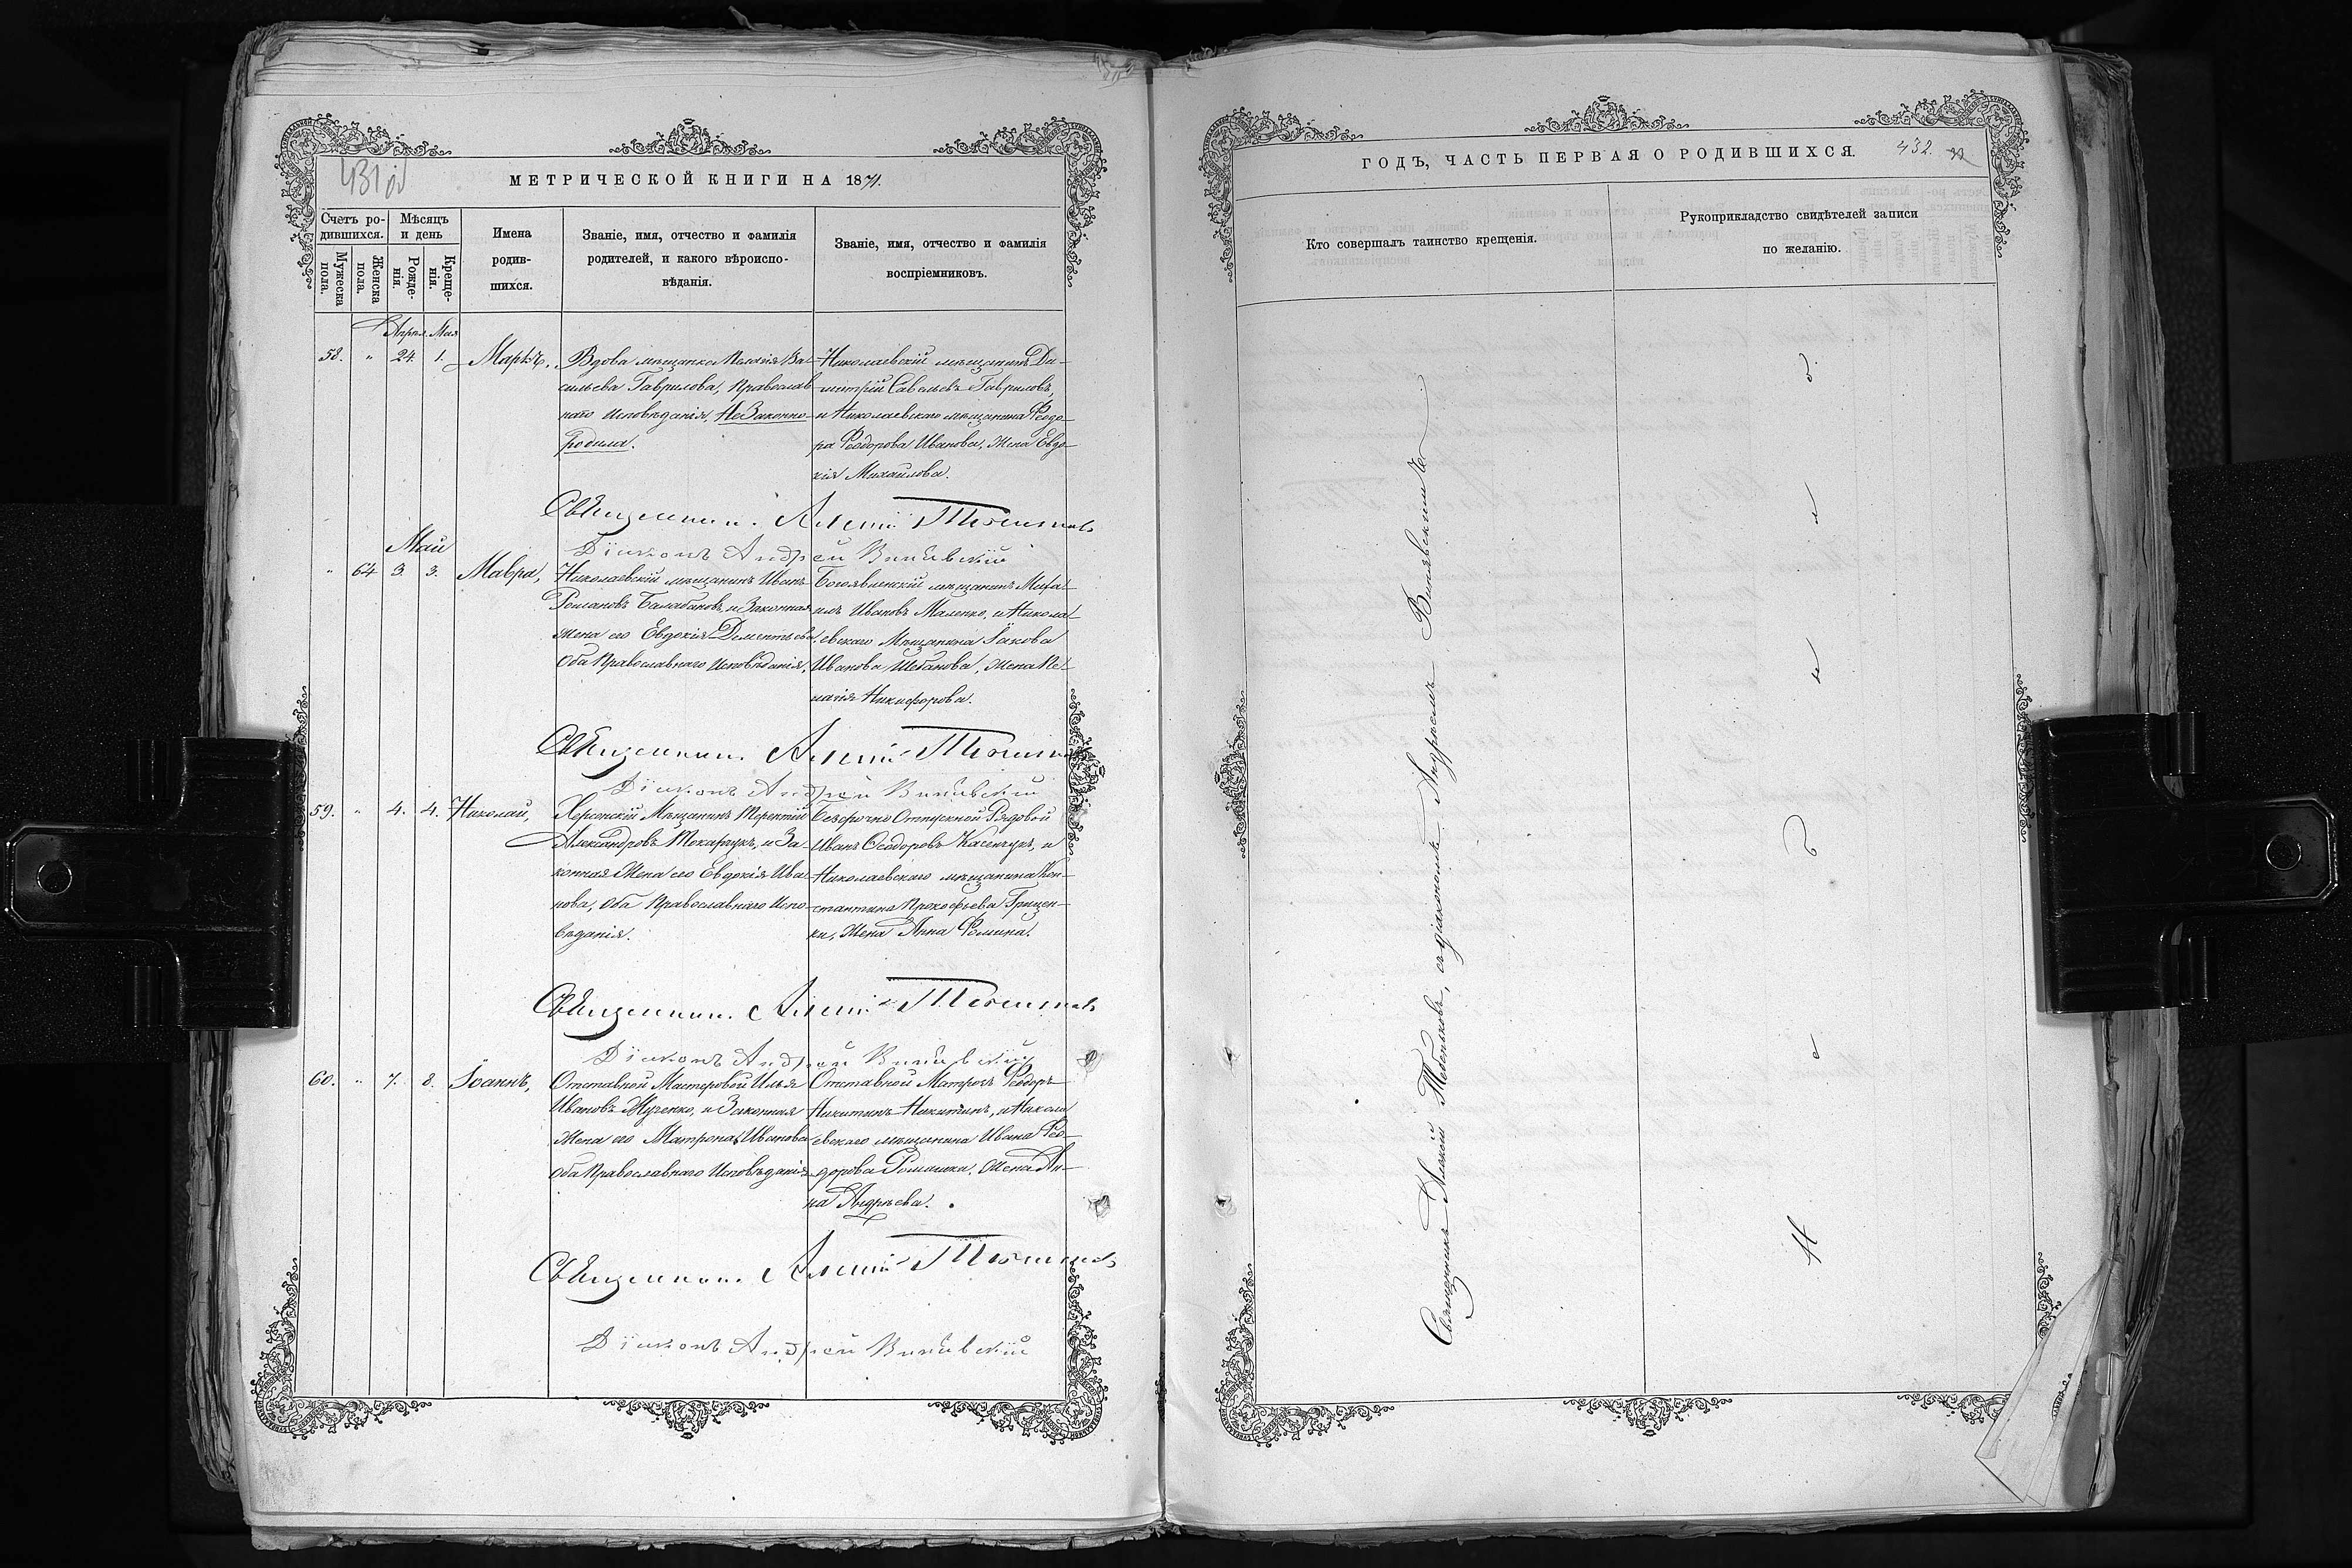 431 об
МЕТРИЧЕСКОЙ КНИГИ НА 1871.
Счетъ ро-
дившихся.
Мѣсяцъ
и день
Мужеска
пола.
Женска
пола.
Рожде-
нія.
Креще-
нія.
Имена
родив-
шихся.
Званіе, имя, отчество и фамилія
родителей, и какого вѣроиспо-
вѣданія.
Званіе, имя, отчество и фамилія
воспріемниковъ.
Апрел. Мая
58. " 24. 1. Маркъ,
Вдова мѣщанка Пелагія Ва-
сильева Гаврилова, Православ-
наго Исповѣданія, Незаконно-
родила.
Николаевскій мѣщанинъ Ди-
митрій Савельевъ Гавриловъ,
и Николаевскаго мѣщанина Ѳеодо-
ра Ѳеодорова Иванова, Жена Евдо-
кія Михайлова.
Священник. Алексій
Діаконъ Андрей
Май
" 64 3. 3. Мавра,
Николаевскій мѣщанинъ Иванъ
Романовъ Балабановъ, и Законная
жена его Евдокія Дементьева,
Оба Православнаго Исповѣданія.
Богоявленскій мѣщанинъ Миха-
илъ Ивановъ Маленко, и Никола-
евскаго Мѣщанина Іакова
Иванова Шебанова, Жена Пе-
лагія Никифорова.
Священник. Алексій
Діаконъ Андрей
59. " 4. 4. Николай,
Херсонскій Мѣщанинъ Терентій
Александровъ Токарчукъ, и За-
конная Жена его Евдокія Ива-
нова, Оба Православнаго Испо-
вѣданія.
Безсрочно Отпускной Рядовой
Иванъ Ѳеодоровъ Касенчукъ, и
Николаевскаго мѣщанина Кон-
стантина Прокофьева Грицен-
ки, Жена Анна Фомина.
Священник. Алексій
Діаконъ Андрей
60. " 7. 8. Іоаннъ,
Отставной Мастеровой Илья
Ивановъ Жученко, и Законная
Жена его Матрона Иванова
Оба Православнаго Исповѣданія
Отставной Матросъ Ѳеодоръ
Никитинъ Никитинъ, и Никола-
евскаго мѣщанина Ивана Ѳео-
дорова Ромашки, Жена Ан-
на Андреева.
Священник. Алексій
Діаконъ Андрей
ГОДЪ, ЧАСТЬ ПЕРВАЯ О РОДИВШИХСЯ.
432.
Кто совершалъ таинство крещенія.
Рукоприкладство свидѣтелей записи
по желанію.
Священникъ Алексій Тебеньковъ, съ діакономъ Андреемъ
Не было